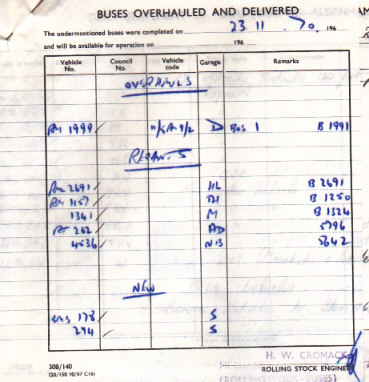 BUSES OVERHAULED AND DELIVERED
The undermentioned buses were completed on 23 11 .70. 196
and will be available for operation on 196
Vehicle No. Council No. Vehicle code Garage Remarks
OVERHAULS
RM 1999 D BOS 1 B 1991
REPAINTS
RM 2691 HL B 2691
RM 1157 B 1250
1341 M B 1324
RF 262 AD 5796
4536 NB 5642
NEW
SMS 178 S
294 S
308/140
H. W. CROMACK
ROLLING STOCK ENGINEER